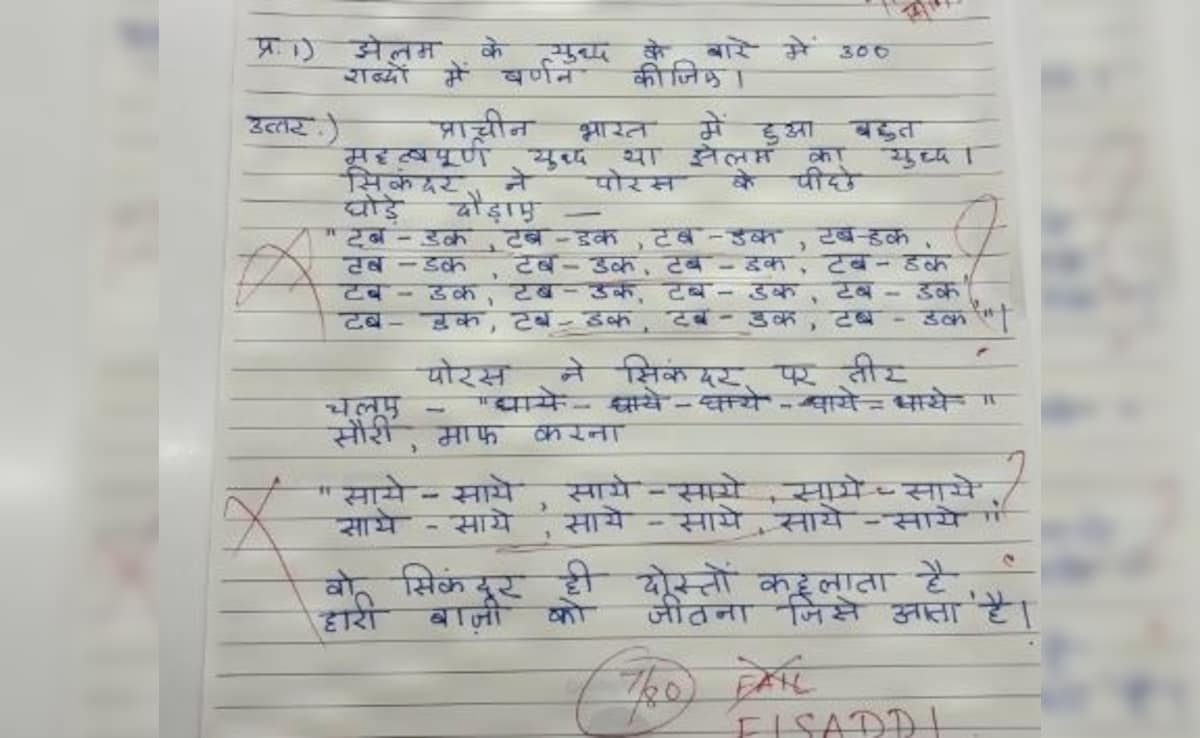 प्र. 1) झेलम के युध्द के बारे में 300
शब्दों में वर्णन कीजिए।
उत्तर.) प्राचीन भारत में हुआ बहुत
महत्वपूर्ण युध्द था झेलम का युध्द।
सिकंदर ने पोरस के पीछे
घोड़े दौड़ाए —
" टब - डक , टब - डक , टब - डक , टब-डक ,
टब - डक , टब - डक , टब - डक , टब - डक
टब - डक , टब - डक , टब - डक , टब - डक
टब - डक , टब - डक , टब - डक , टब - डक "।
पोरस ने सिकंदर पर तीर
चलाए - "धाये - धाये - धाये - धाये - धाये "
सौरी , माफ करना
" साये - साये , साये - साये , साये - साये ,
साये - साये , साये - साये , साये - साये "
वो सिकंदर ही दोस्तों कहलाता है,
हारी बाज़ी को जीतना जिसे आता है।
7/80 FAIL
FISADDI